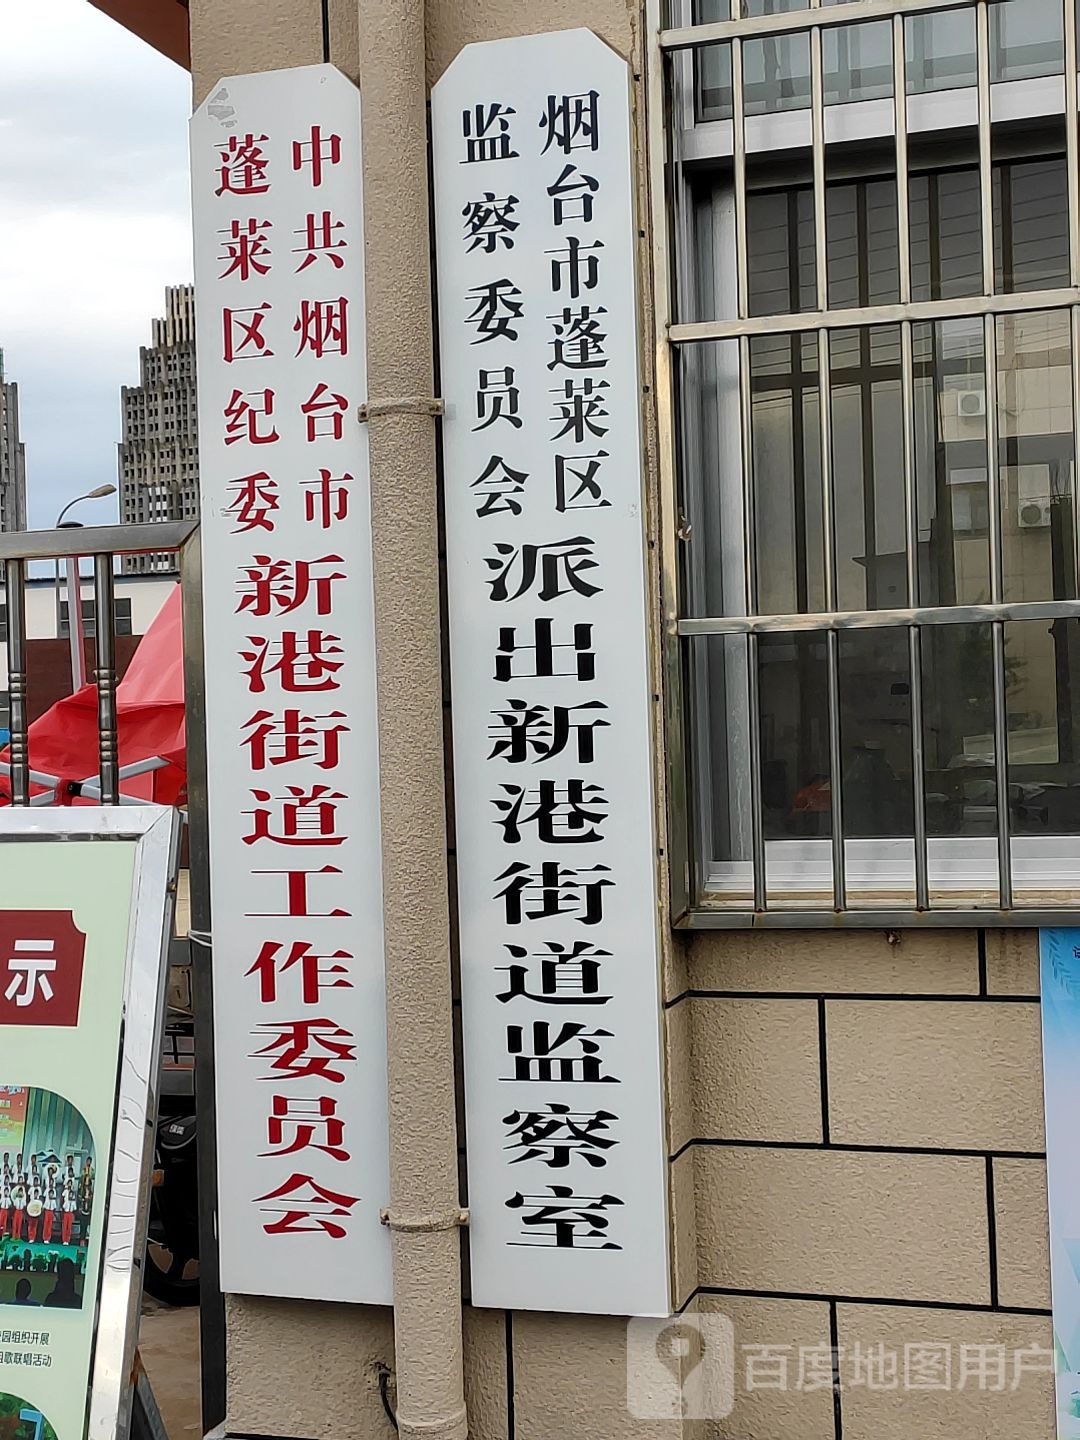 中共烟台市
蓬莱区纪委
新港街道工作委员会
烟台市蓬莱区
监察委员会
派出新港街道监察室
示
园组织开展
歌联唱活动
百度地图用户